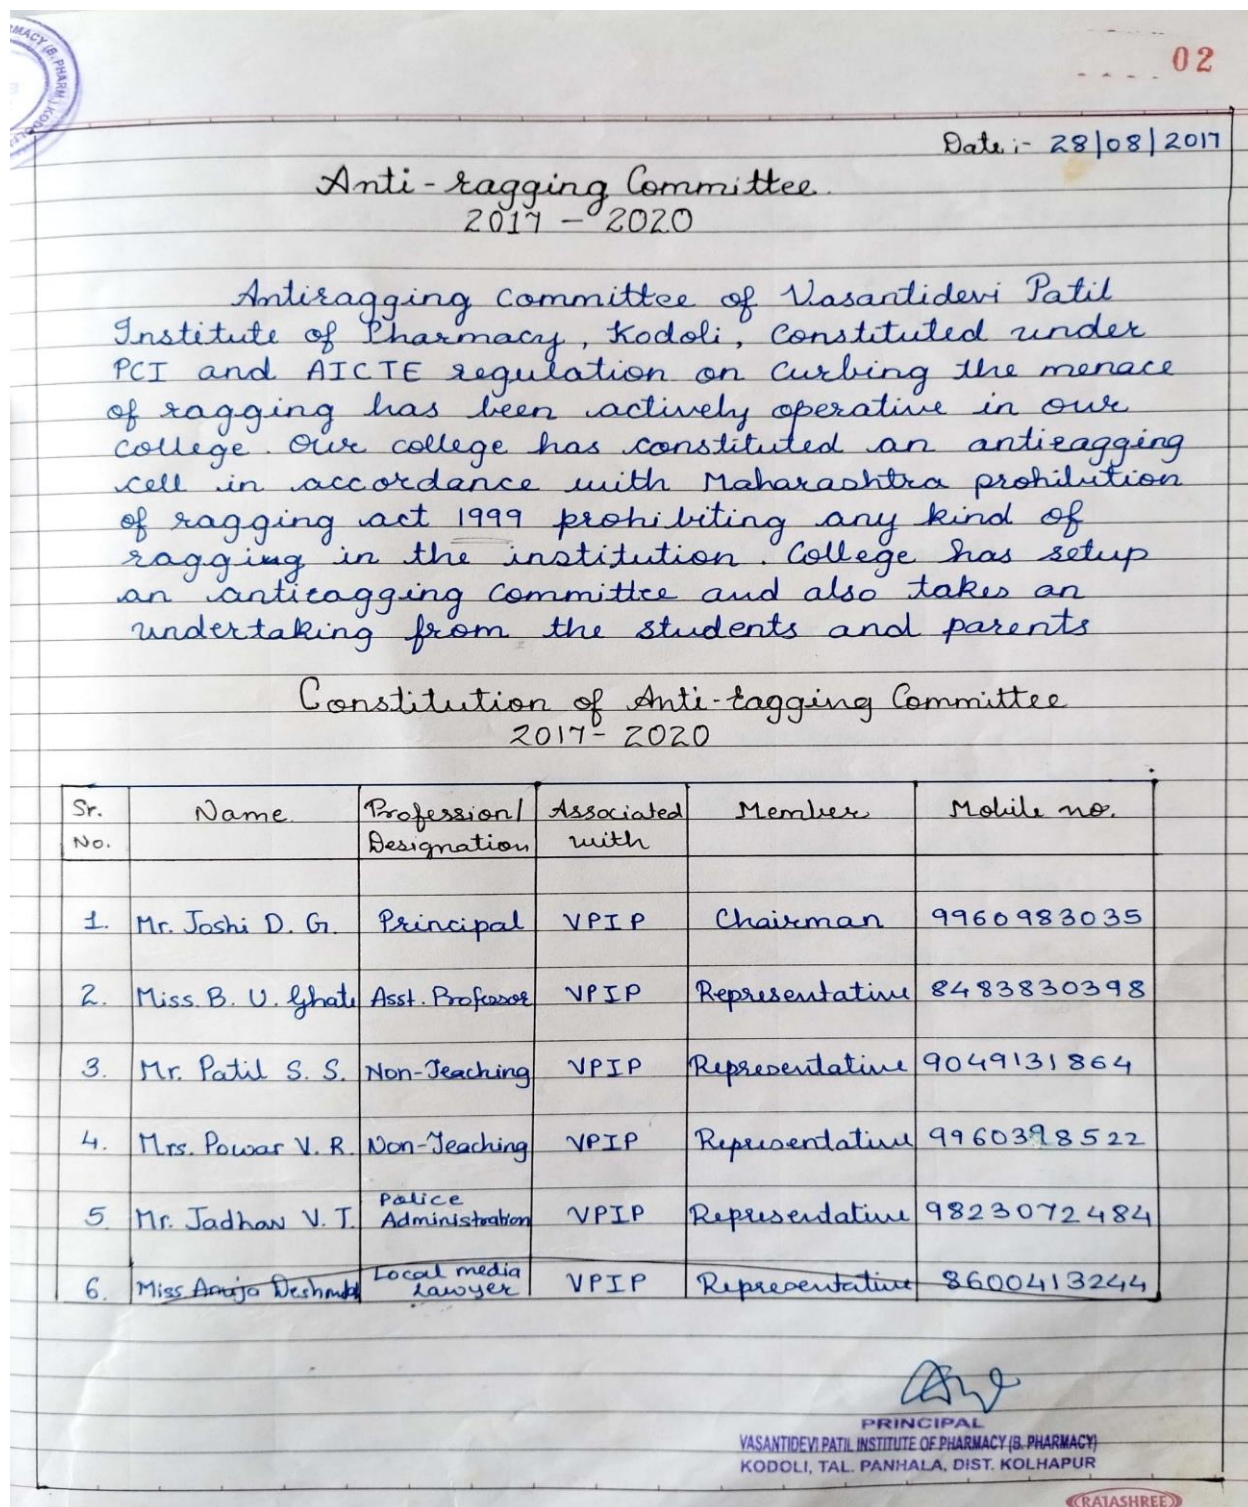 MACY (B. PHARM.) KODOLI
02
Date :- 28/08/2017
Anti-ragging Committee
2017 - 2020
Antiragging committee of Vasantidevi Patil
Institute of Pharmacy, Kodoli, Constituted under
PCI and AICTE regulation on curbing the menace
of ragging has been actively operative in our
college. Our college has constituted an antiragging
cell in accordance with Maharashtra prohibition
of ragging act 1999 prohibiting any kind of
ragging in the institution. College has setup
an antiragging committee and also takes an
undertaking from the students and parents
Constitution of Anti-ragging Committee
2017- 2020
Sr. No. Name Profession/ Designation Associated with Member Mobile no.
1. Mr. Joshi D. G. Principal VPIP Chairman 9960983035
2. Miss. B. U. Ghate Asst. Professor VPIP Representative 8483830398
3. Mr. Patil S. S. Non-Teaching VPIP Representative 9049131864
4. Mrs. Powar V. R. Non-Teaching VPIP Representative 9960398522
5. Mr. Jadhav V. T. Police Administration VPIP Representative 9823072484
6. Miss Anuja Deshmukh Local media Lawyer VPIP Representative 8600413244
PRINCIPAL
VASANTIDEVI PATIL INSTITUTE OF PHARMACY (B. PHARMACY)
KODOLI, TAL. PANHALA, DIST. KOLHAPUR
RAJASHREE